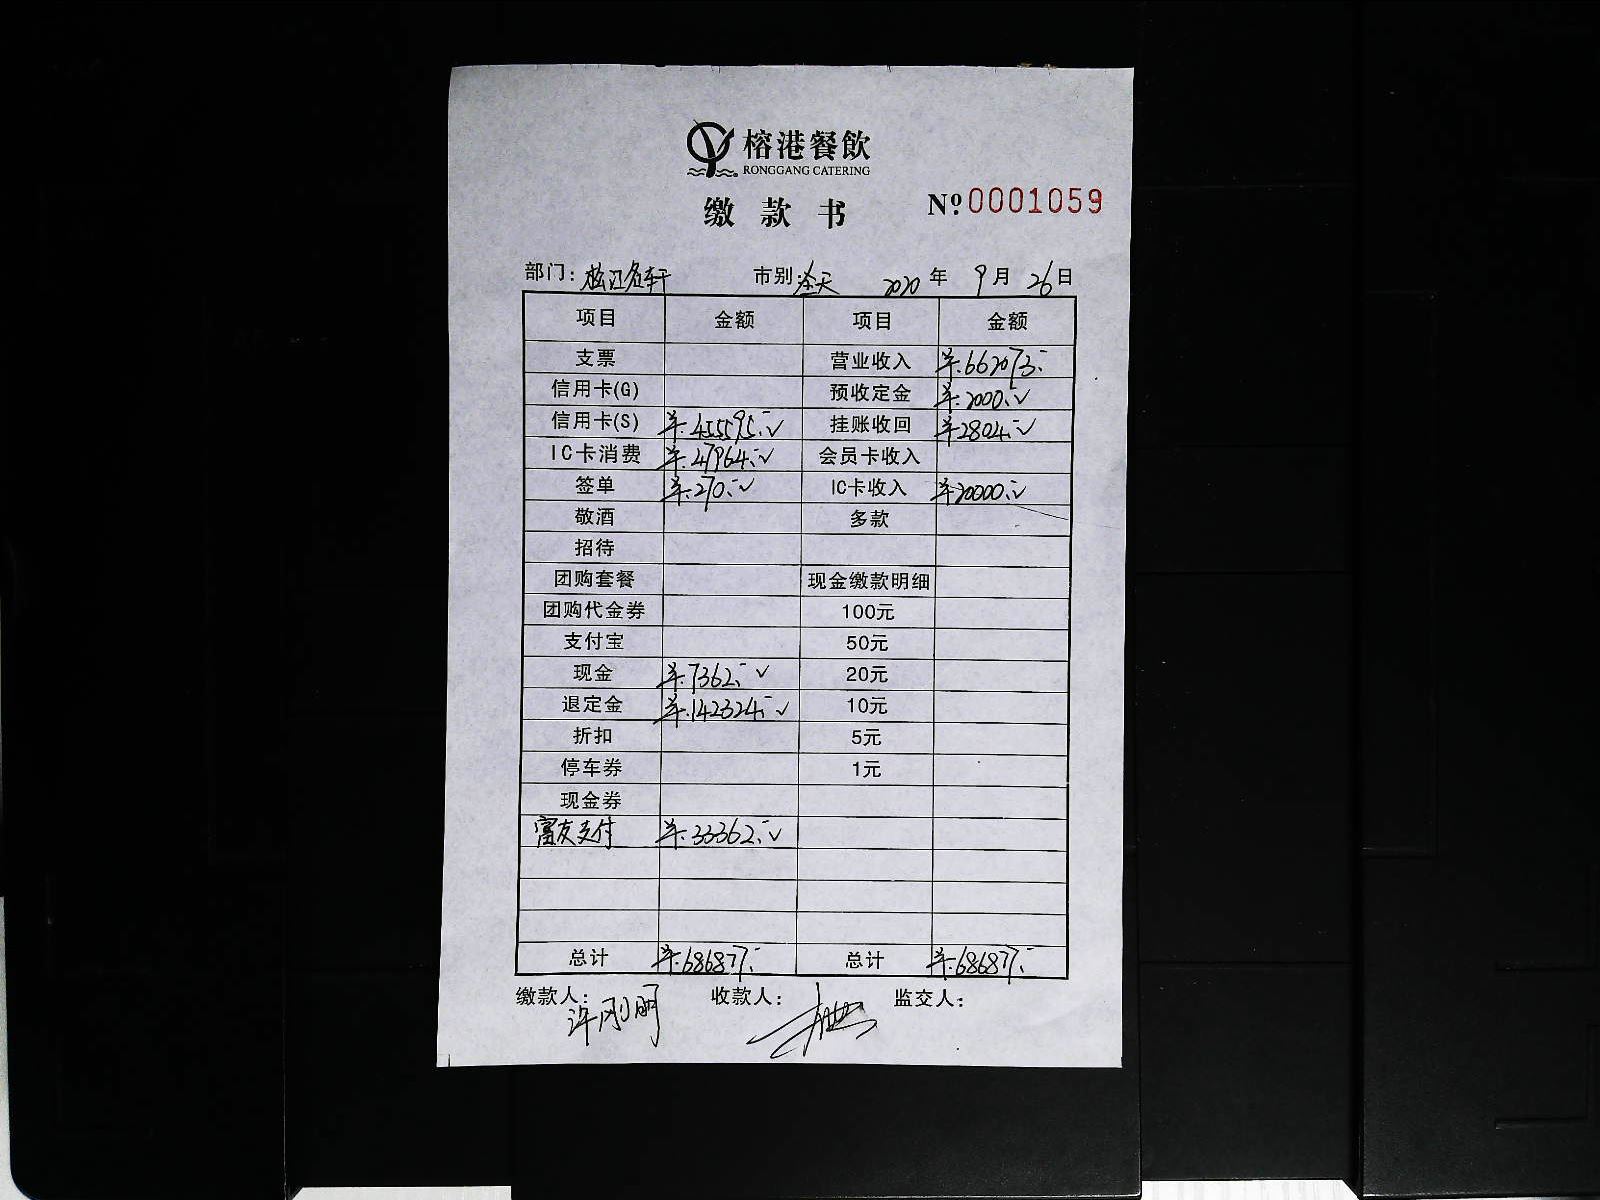 榕港餐飲
RONGGANG CATERING
缴款书 Nº 0001059
部门: 松江名轩 市别: 全天 2020 年 9 月 26 日
项目 金额 项目 金额
支票 营业收入 ¥:662073.-
信用卡(G) 预收定金 ¥:2000.-✓
信用卡(S) ¥:455595.-✓ 挂账收回 ¥2804.-✓
IC卡消费 ¥:47964.-✓ 会员卡收入
签单 ¥:270.-✓ IC卡收入 ¥20000.-✓
敬酒 多款
招待
团购套餐 现金缴款明细
团购代金券 100元
支付宝 50元
现金 ¥:7362.-✓ 20元
退定金 ¥:142324.-✓ 10元
折扣 5元
停车券 1元
现金券
富友支付 ¥:33362.-✓
总计 ¥:686877.- 总计 ¥:686877.-
缴款人: 许刚明 收款人: 监交人: